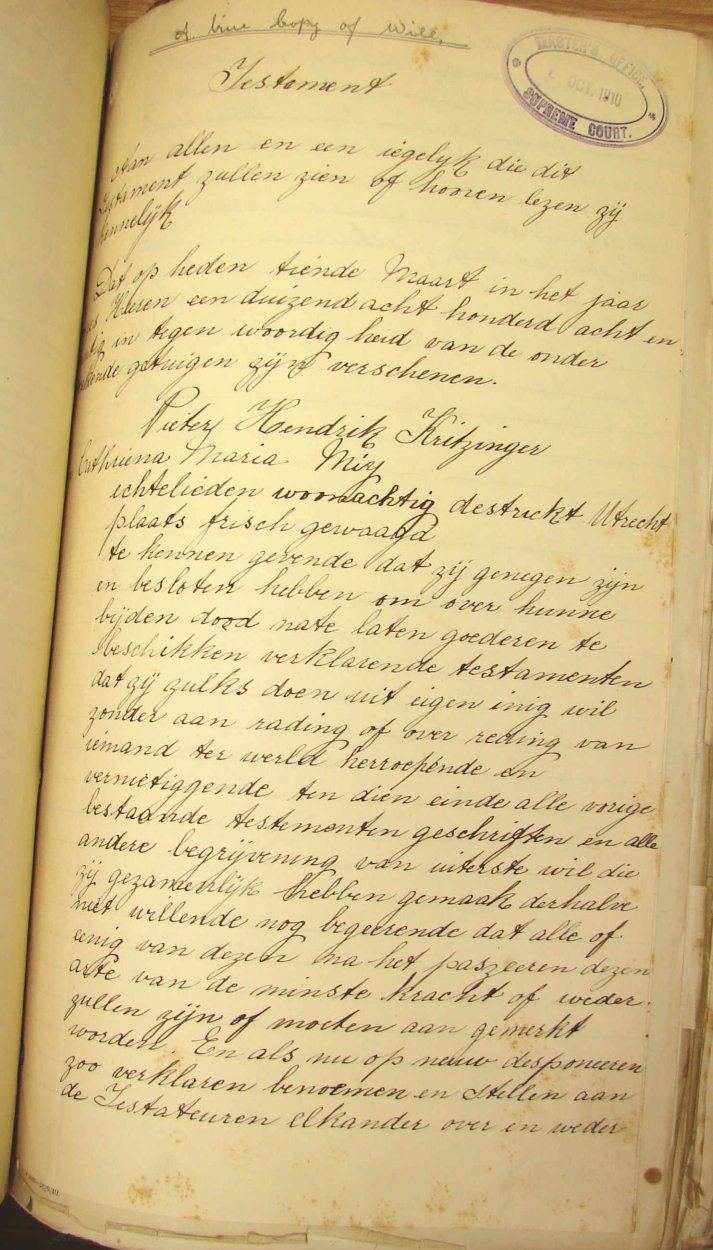 A true Copy of Will.
MASTER'S OFFICE
OCT. 1910
SUPREME COURT.
Testament
Aan allen en een iegelyk die dit
Testament zullen zien of hooren lezen zij
kennelijk
Dat op heden tiende Maart in het jaar
des Heeren een duizend acht honderd acht en
in tegen woordig heid van de onder
getuigen zijn verschenen.
Pieter Hendrik Kritzinger
Cathriena Maria
echtelieden woonachtig destrickt Utrecht
plaats frisch gewaagd
te kennen gevende dat zij genegen zijn
en besloten hebben om over hunne
bijden dood nate laten goederen te
beschikken verklarende testamenten
dat zij zulks doen uit eigen inig wil
zonder aan rading of over reding van
iemand ter werld herroepende en
vernietiggende ten dien einde alle vorige
bestaande testementen geschriften en alle
andere begrijvening van uiterste wil die
zij gezamerlijk hebben gemaak derhalve
niet willende nog begeerende dat alle of
eenig van dezen na het paszeeren dezen
akte van de minste kracht of weder.
zullen zijn of moeten aan gemerkt
worden. En als nu op nieuw desponeeren
zoo verklaren benoemen en stellen aan
de Testateuren elkander over en weder